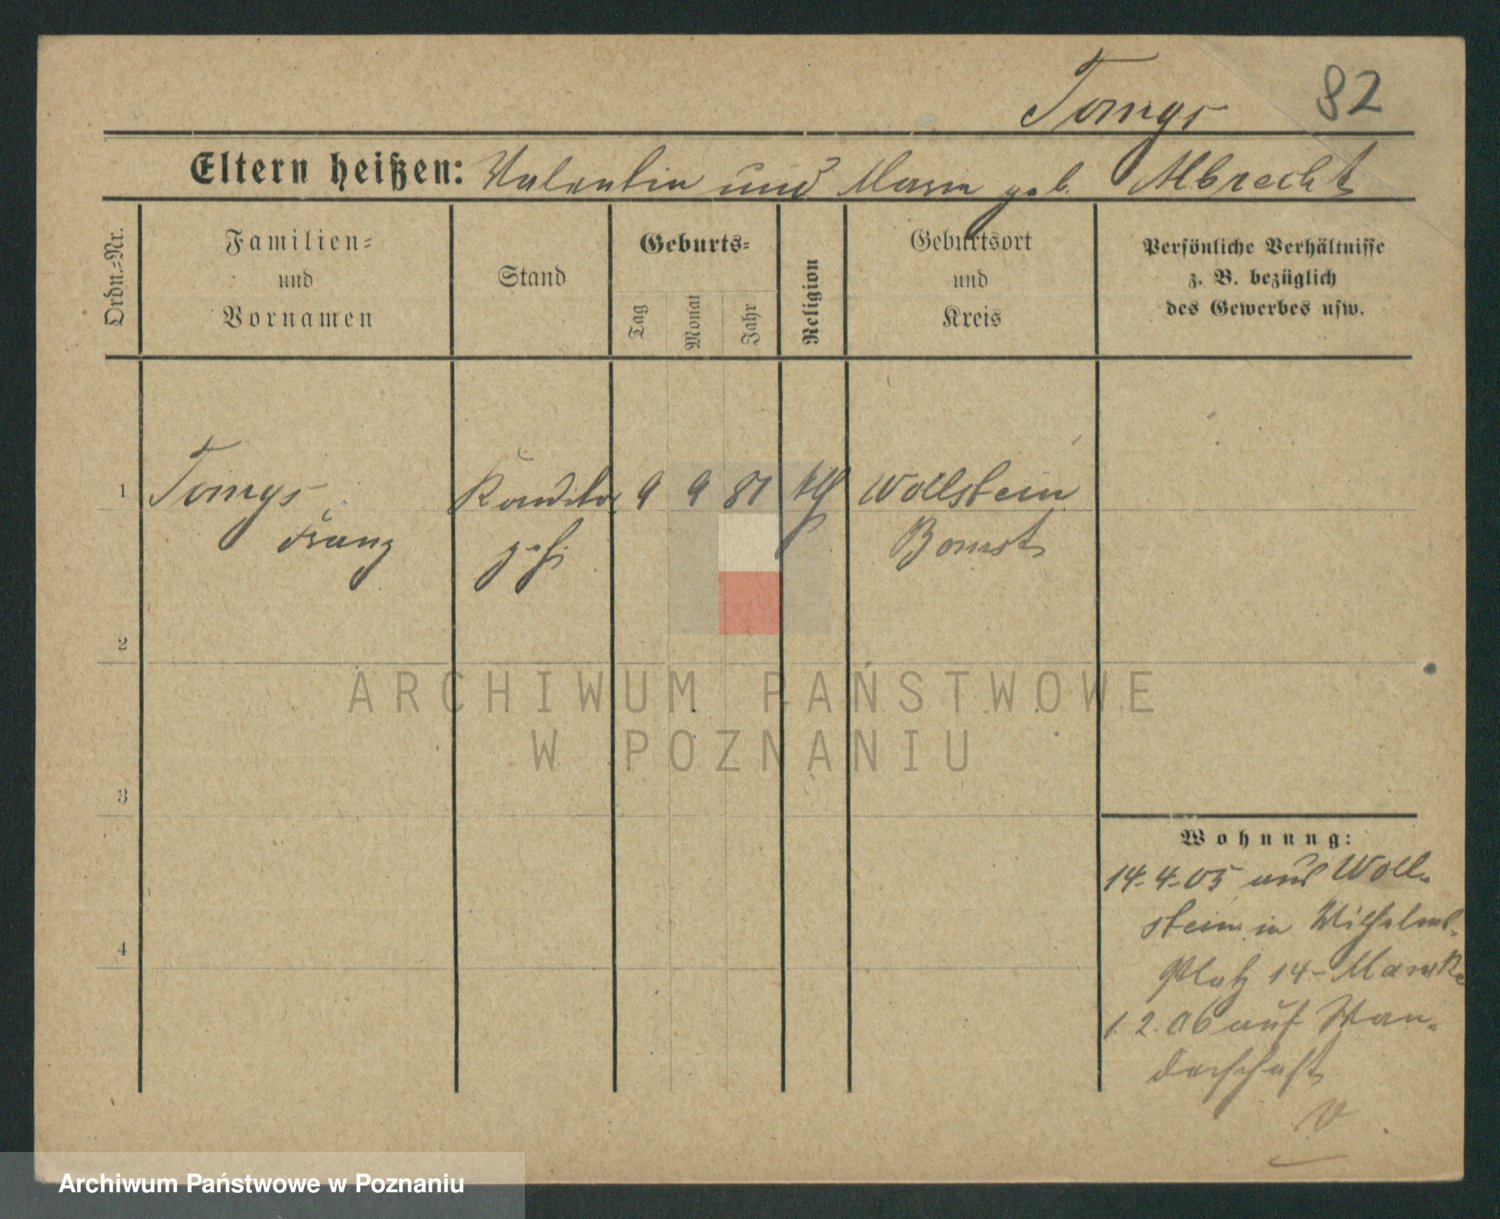 Tomys 82
Eltern heißen: Valentin und Maria geb. Albrecht
Ordn.-Nr.
Familien-
und
Vornamen
Stand
Geburts-
Tag
Monat
Jahr
Religion
Geburtsort
und
Kreis
Persönliche Verhältnisse
z. B. bezüglich
des Gewerbes usw.
1 Tomys Konditor 9 9 81 Wollstein
Franz Bomst
2
ARCHIWUM PAŃSTWOWE
W POZNANIU
3
4
Wohnung:
14.4.05 aus Woll-
stein in Wilhelms-
Platz 14
1.2.06 auf Wan-
derschaft
Archiwum Państwowe w Poznaniu